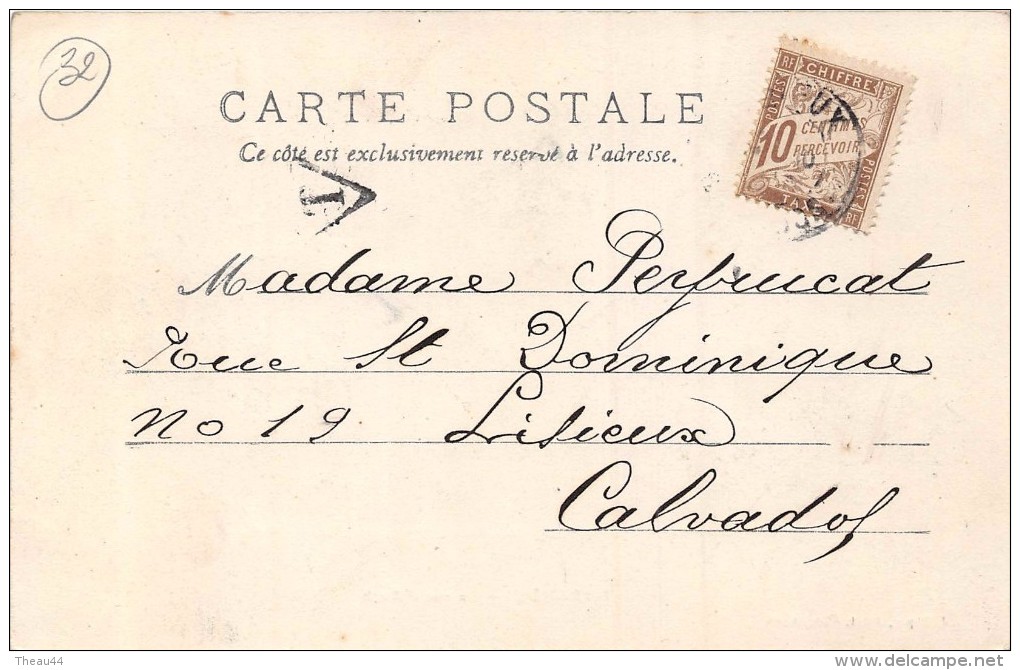 32
CARTE POSTALE
Ce côté est exclusivement reservé à l'adresse.
RF CHIFFRE
POSTES
10 CENTIMES
PERCEVOIR
POSTES
TAXE RF
T
Madame Peyrucat
Rue St Dominique
No 19 Lisieux
Calvados
Theau44
delcampe.net